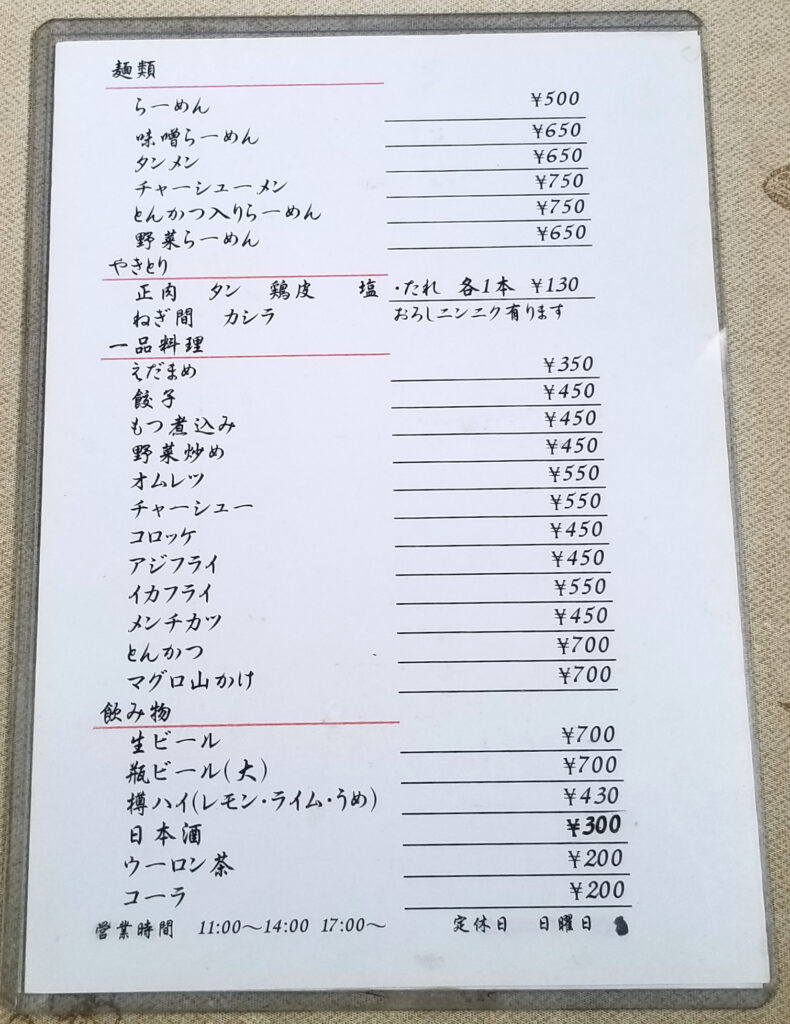 麺類
らーめん ¥500
味噌らーめん ¥650
タンメン ¥650
チャーシューメン ¥750
とんかつ入りらーめん ¥750
野菜らーめん ¥650
やきとり
正肉 タン 鶏皮 塩・たれ 各1本 ¥130
ねぎ間 カシラ おろしニンニク有ります
一品料理
えだまめ ¥350
餃子 ¥450
もつ煮込み ¥450
野菜炒め ¥450
オムレツ ¥550
チャーシュー ¥550
コロッケ ¥450
アジフライ ¥450
イカフライ ¥550
メンチカツ ¥450
とんかつ ¥700
マグロ山かけ ¥700
飲み物
生ビール ¥700
瓶ビール(大) ¥700
樽ハイ(レモン・ライム・うめ) ¥430
日本酒 ¥300
ウーロン茶 ¥200
コーラ ¥200
営業時間 11:00〜14:00 17:00〜 定休日 日曜日